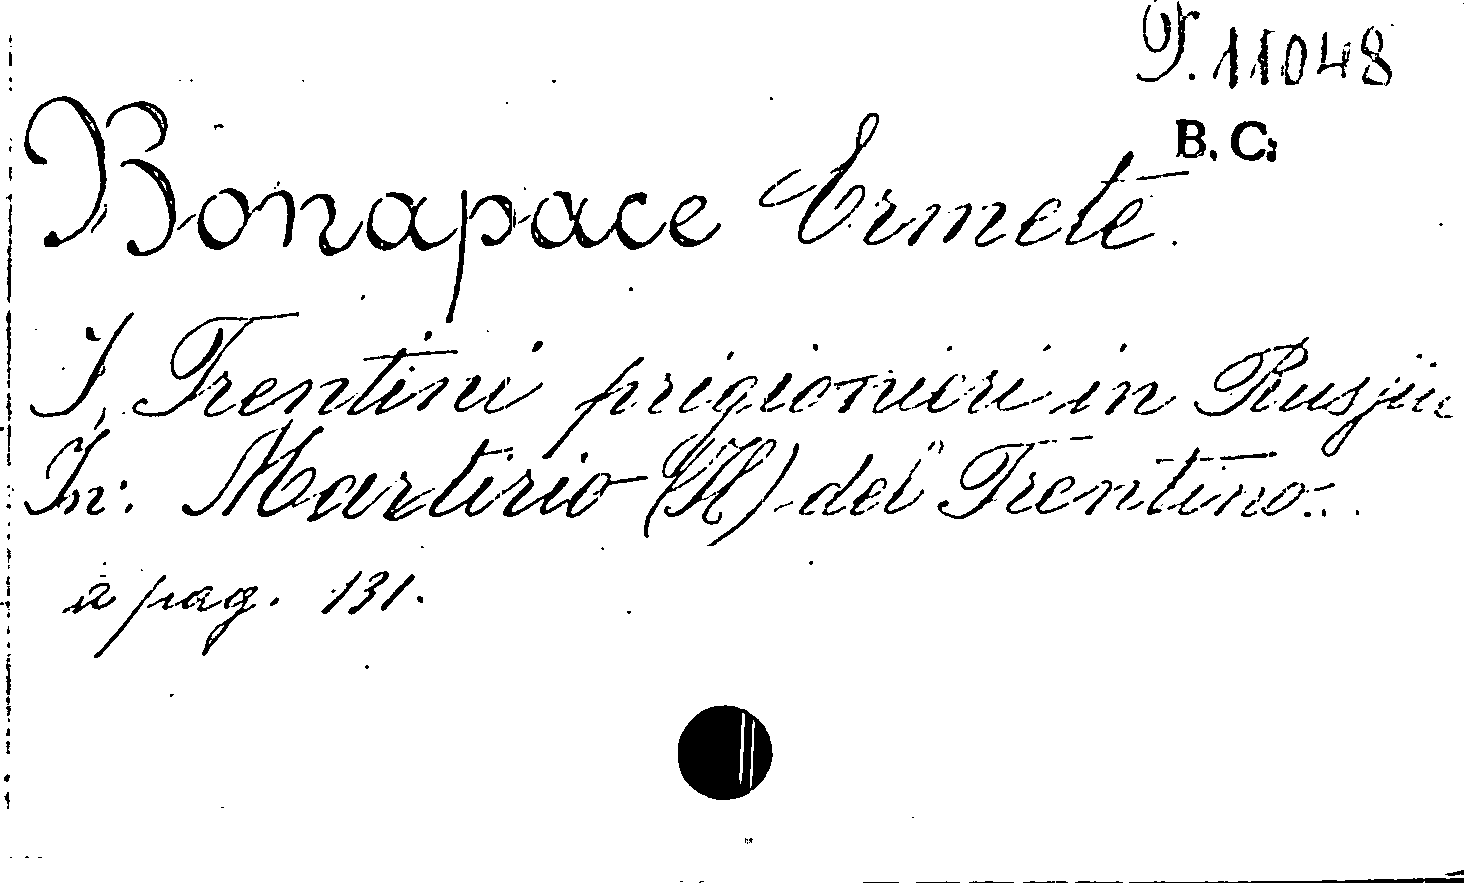 P. 11048
B. C.
Bonapace Ermete.
I Trentini prigionieri in Russia
In: Martirio (Il) del Trentino...
a pag. 131.